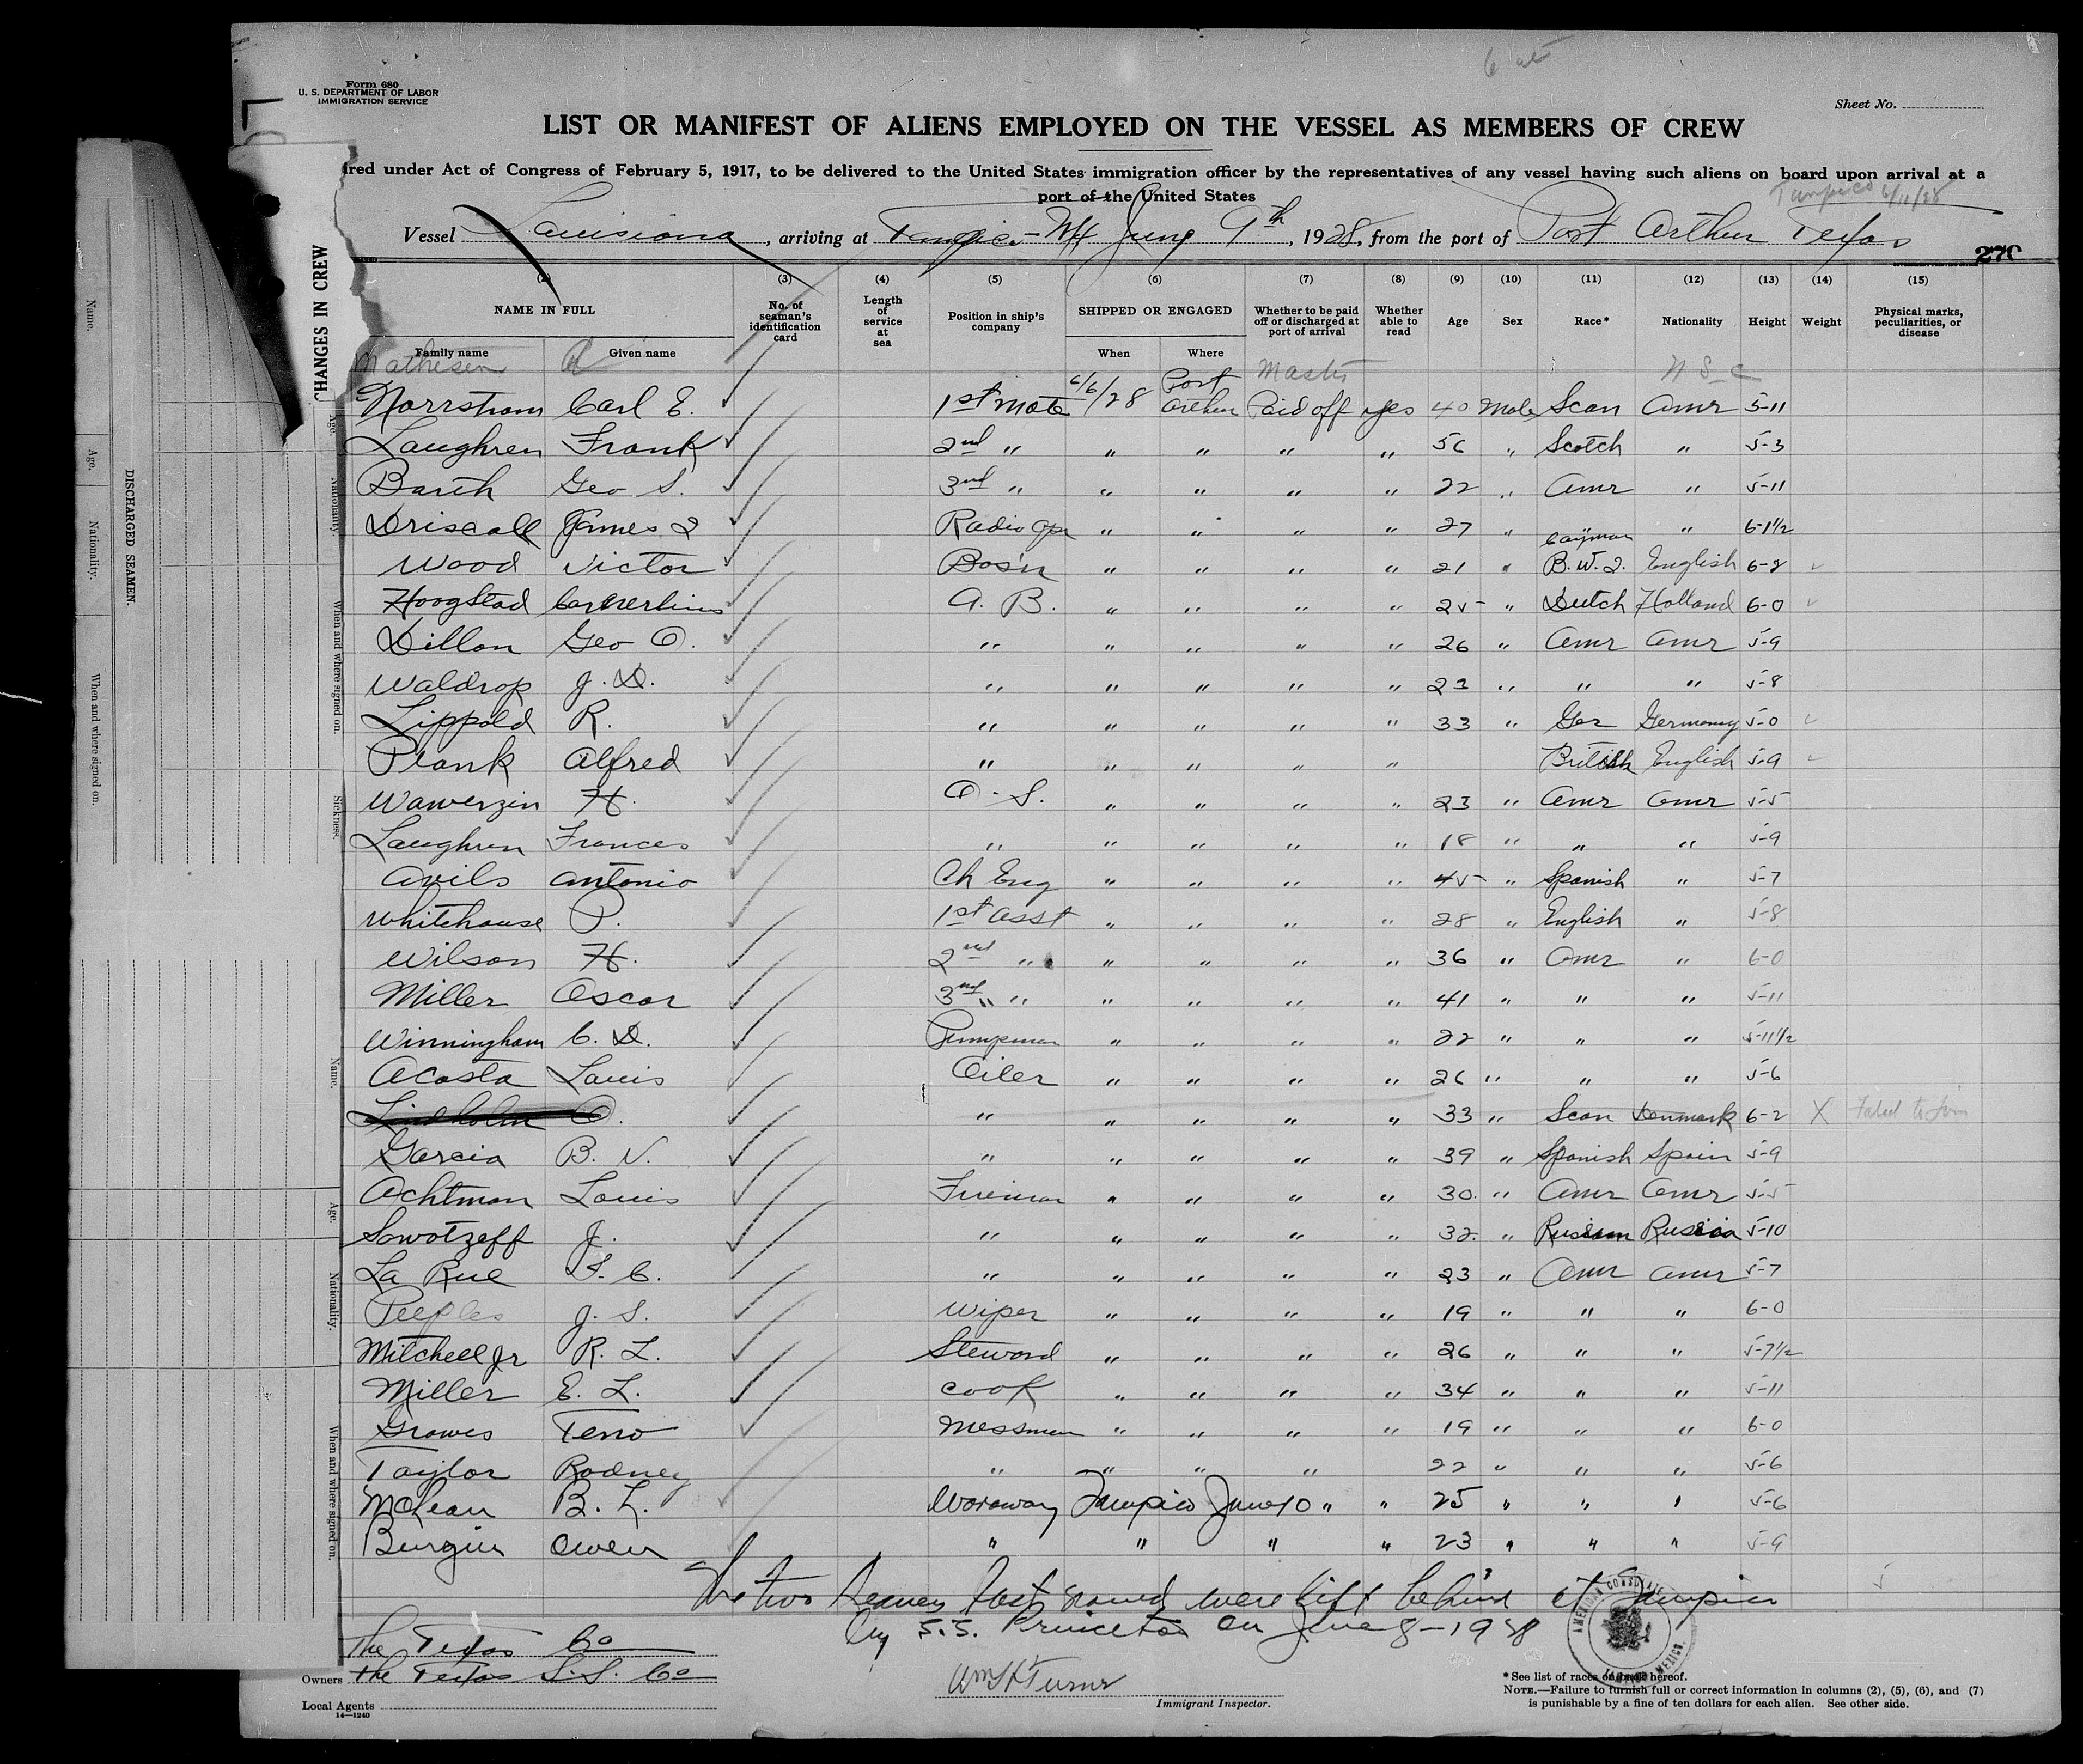 Form 680
U. S. DEPARTMENT OF LABOR
IMMIGRATION SERVICE
Sheet No.
LIST OR MANIFEST OF ALIENS EMPLOYED ON THE VESSEL AS MEMBERS OF CREW
red under Act of Congress of February 5, 1917, to be delivered to the United States immigration officer by the representatives of any vessel having such aliens on board upon arrival at a
port of the United States
Tampico 6/11/28
Vessel Louisiana, arriving at Tampico - Mx June 9th, 1928, from the port of Port Arthur Texas
270
CHANGES IN CREW
DISCHARGED SEAMEN.
Name. Age. Nationality. When and where signed on.
Age. Nationality. When and where signed on. Sickness.
Name. Age. Nationality. When and where signed on.
(3) (4) (5) (6) (7) (8) (9) (10) (11) (12) (13) (14) (15)
NAME IN FULL No. of seaman's identification card Length of service at sea Position in ship's company SHIPPED OR ENGAGED Whether to be paid off or discharged at port of arrival Whether able to read Age Sex Race* Nationality Height Weight Physical marks, peculiarities, or disease
Family name Given name When Where
Mathesen Master
Norrstrom Carl E. 1st Mate 6/6/28 Port Arthur Paid off yes 40 Male Scan Amr 5-11
Laughren Frank 2nd " " " " " 56 " Scotch " 5-3
Barth Geo S. 3nd " " " " " 22 " Amr " 5-11
Driscoll James I Radio Opr " " " " 27 " " 6-1½
Wood Victor Bos'n " " " " 21 " Cayman B.W.I. English 6-2
Hoogstad A. B. " " " " 25 " Dutch Holland 6-0
Dillon Geo O. " " " " " 26 " Amr Amr 5-9
Waldrop J. D. " " " " " 21 " " " 5-8
Lippold R. " " " " " 33 " Ger Germany 5-0
Plank Alfred " " " " " British English 5-9
Wawerzin H. O. S. " " " " 23 " Amr Amr 5-5
Laughren Frances " " " " " 18 " " " 5-9
Avils Antonio Ch Eng " " " " 45 " Spanish " 5-7
Whitehouse P. 1st Asst " " " " 28 " English " 5-8
Wilson H. 2nd " " " " " 36 " Amr " 6-0
Miller Oscar 3nd " " " " " " 41 " " " 5-11
Winningham C. D. Pumpman " " " " 22 " " " 5-11½
Acosta Louis Oiler " " " " 26 " " " 5-6
Lindholm O. " " " " " 33 " Scan Denmark 6-2 X Failed to Join
Garcia B. N. " " " " " 39 " Spanish Spain 5-9
Achtman Louis Fireman " " " " 30. " Amr Amr 5-5
Sowotzeff J. " " " " " 32. " Russian Russia 5-10
La Rue F. C. " " " " " 23 " Amr Amr 5-7
Peeples J. S. Wiper " " " " 19 " " " 6-0
Mitchell Jr R. L. Steward " " " " 26 " " " 5-7½
Miller E. L. Cook " " " " 34 " " " 5-11
Graves Teno Messman " " " " 19 " " " 6-0
Taylor Rodney " " " " 22 " " " 5-6
McLean B. L. Woraway Tampico June 10 " " 25 " " " 5-6
Burgin Owen " " " " 23 " " " 5-9
The two seamen last named were left behind at Tampico
by S.S. Princeton on June 8-1928
AMERICAN CONSULATE
TAMPICO, MEXICO.
The Texas Co
Owners The Texas S.S. Co
Local Agents
14—1240
Wm H Turner
Immigrant Inspector.
*See list of races on back hereof.
NOTE.—Failure to furnish full or correct information in columns (2), (5), (6), and (7)
is punishable by a fine of ten dollars for each alien. See other side.